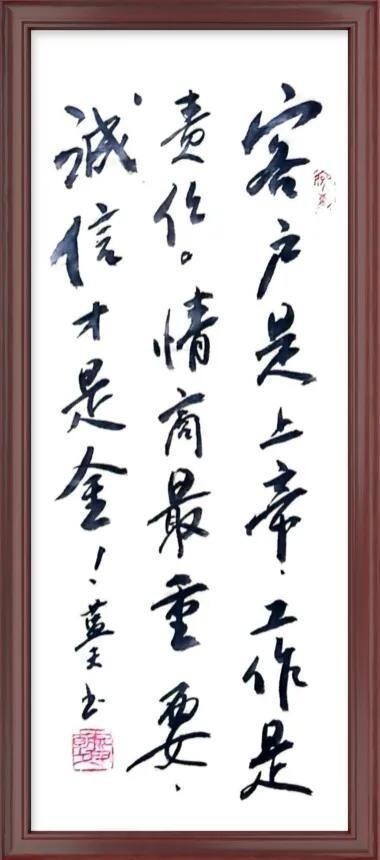 客户是上帝、工作是
责任。情商最重要、
诚信才是金！蓝天书